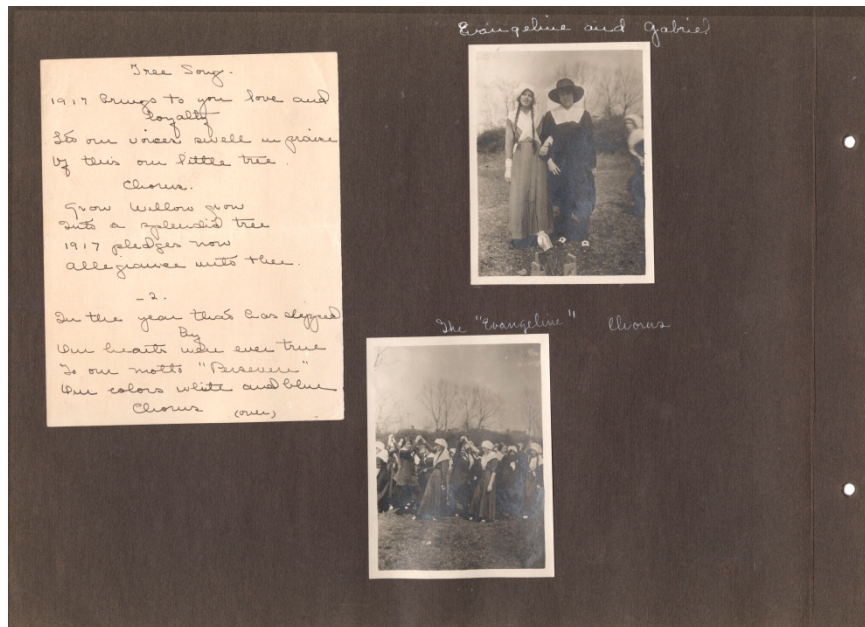 Tree Song.
1917 brings to you love and
loyalty
Let our voices swell in praise
Of this our little tree.
Chorus.
Grow Willow grow
Into a splendid tree
1917 pledges now
allegiance unto thee.
-2.
In the year that has slipped
By
Our hearts were ever true
To our motto "Persevere"
Our colors white and blue
Chorus (over)
Evangeline and Gabriel
The "Evangeline" Chorus